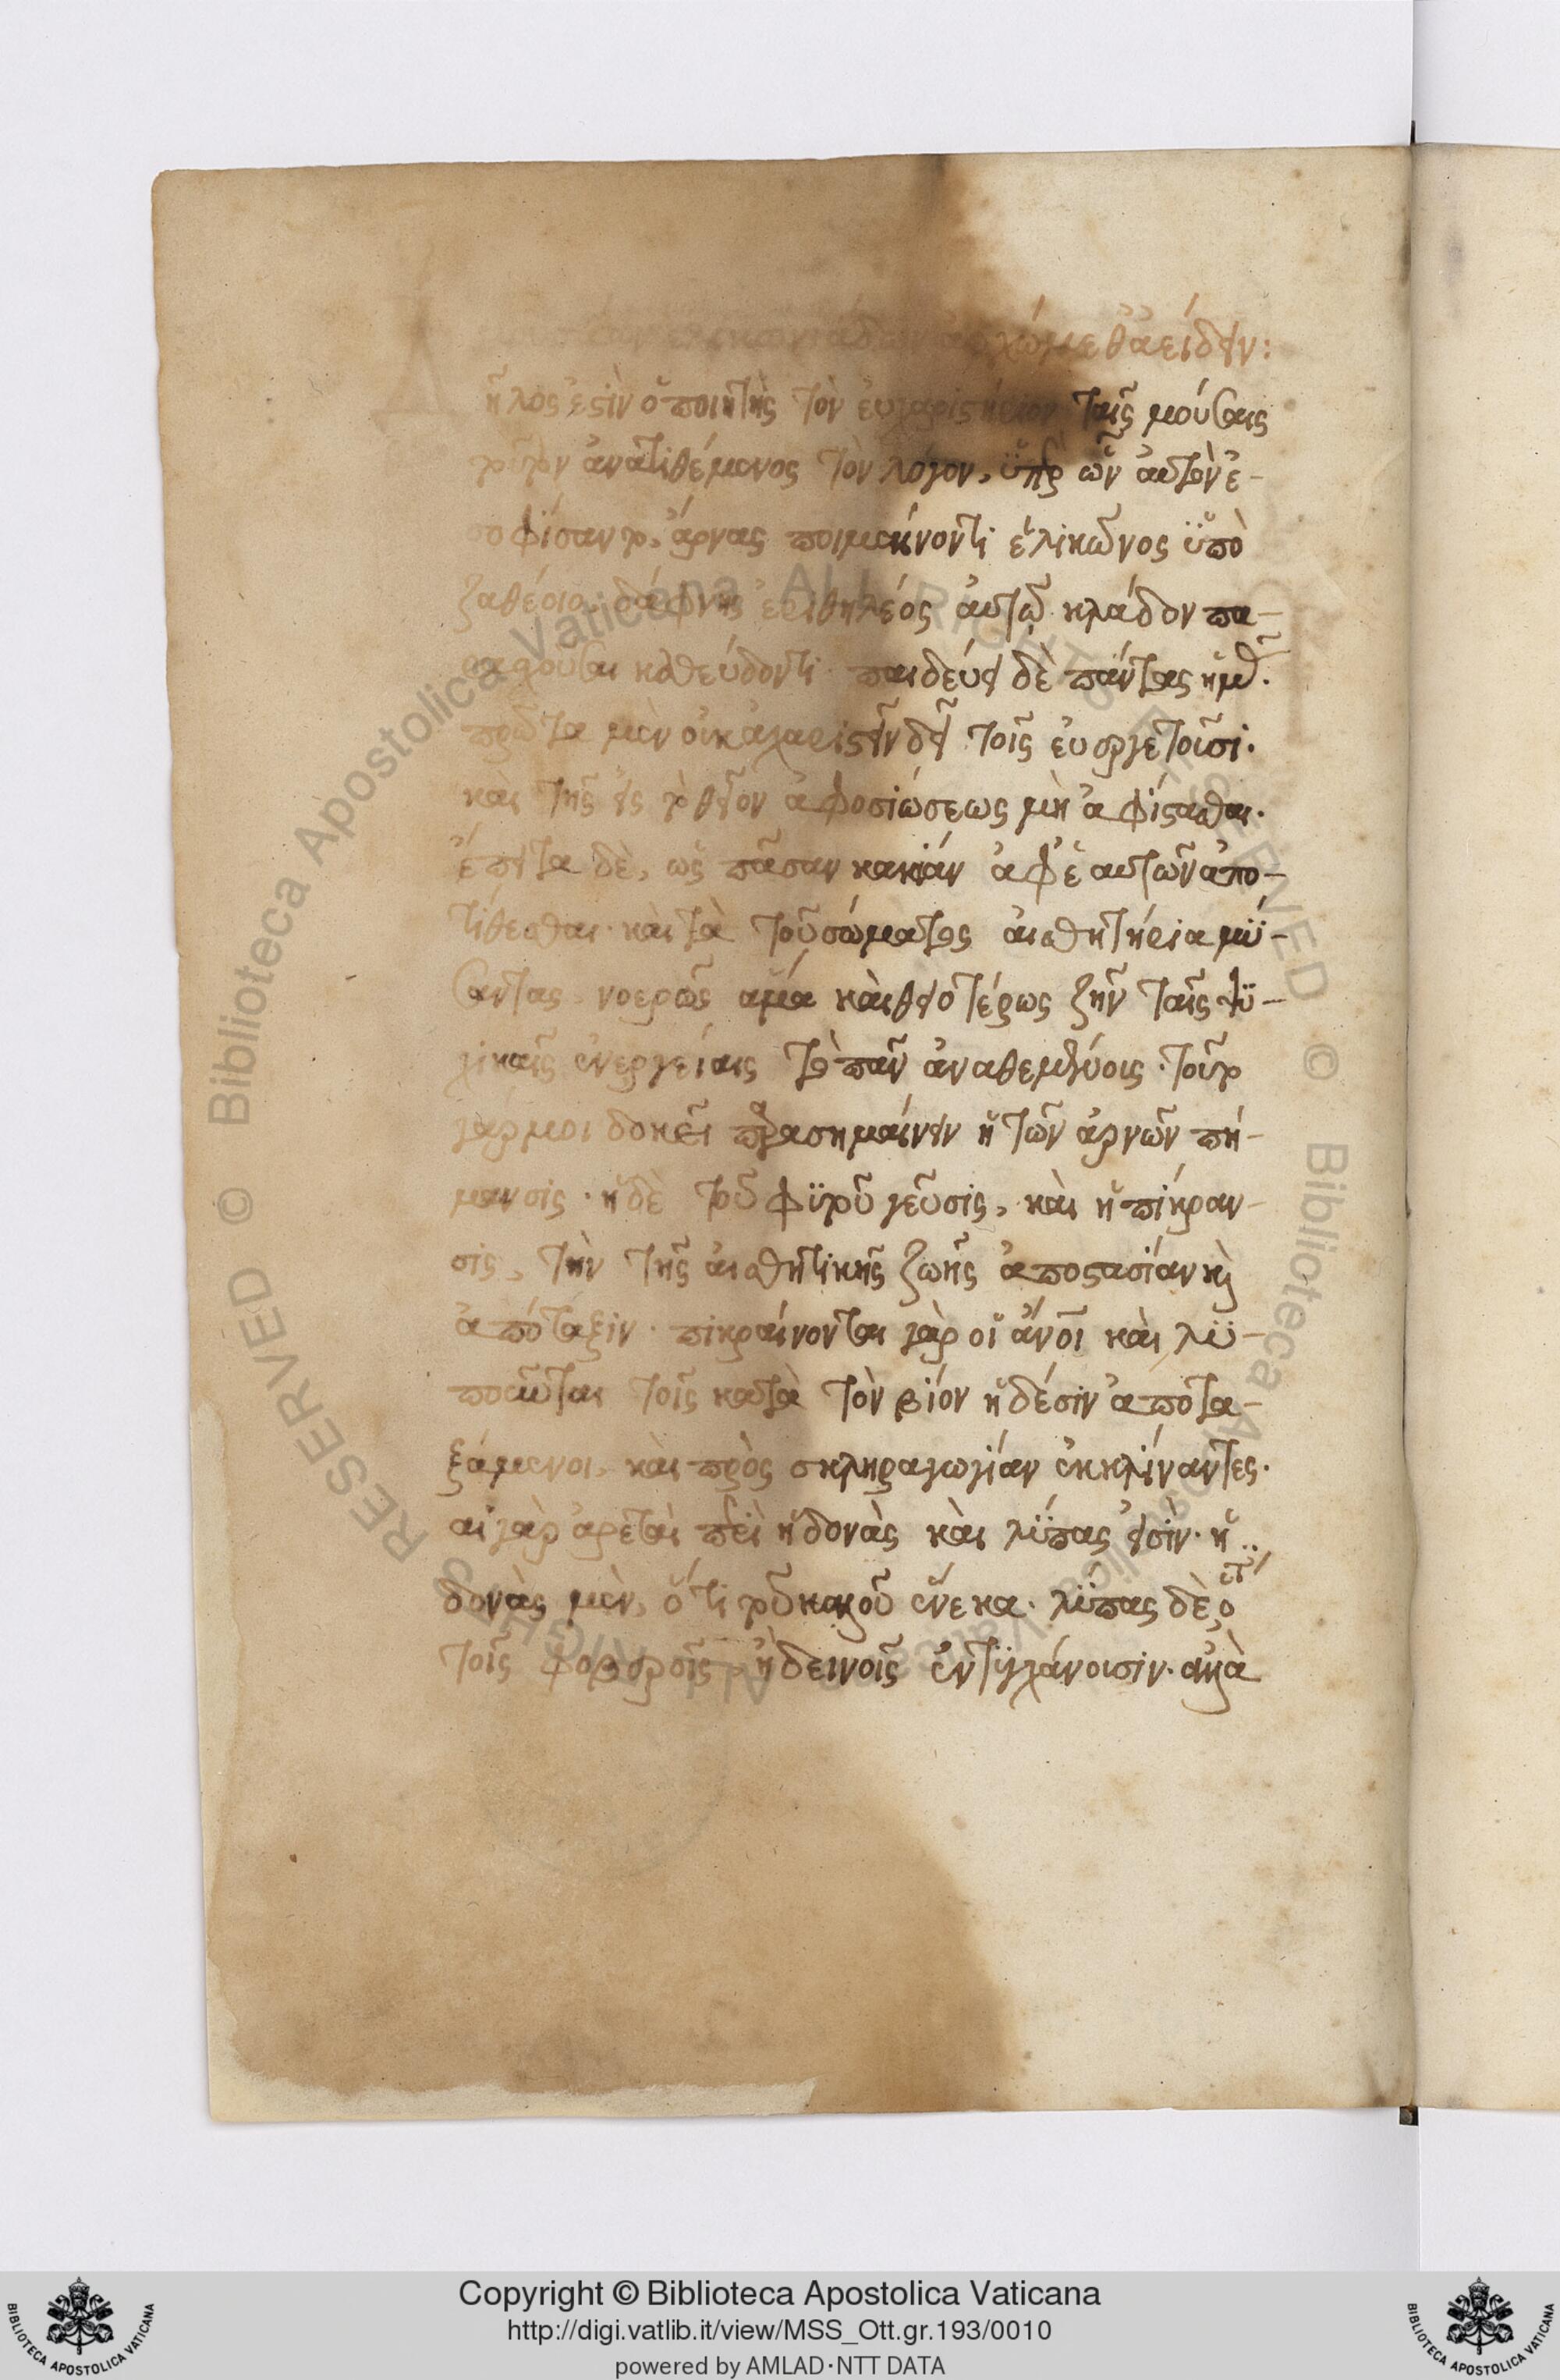 μουσάων ἑλικωνιάδων ἀρχώμεθ ἀείδειν:
ῆλός ἐστιν ὁ ποιητὴς τὸν εὐχαριστήριον ταῖς μούσαις
τοῦτον ἀνατιθέμενος τὸν λόγον, ὑπὲρ ὧν αὐτὸν ἐ-
σοφίσαντο, ἄρνας ποιμαίνοντι ἑλικῶνος ὑπὸ
ζαθέοιο, δάφνης ἐριθηλέος αὐτῷ κλάδον πα-
ρασχοῦσαι καθεύδοντι· παιδεύει δὲ πάντας ἡμᾶς.
πρῶτα μὲν οὐκ ἀχαριστεῖν δεῖ τοῖς εὐεργετοῦσι·
καὶ τῆς εἰς τὸ θεῖον ἀφοσιώσεως μὴ ἀφίστασθαι.
ἔπειτα δὲ, ὡς πᾶσαν κακίαν ἀφ' ἑαυτῶν ἀπο-
τίθεσθαι· καὶ τὰ τοῦ σώματος αἰσθητήρια μύ-
σαντας νοερῶς ἅμα καὶ θειοτέρως ζῆν ταῖς ψυ-
χικαῖς ἐνεργείαις τὸ πᾶν ἀναθεμένοις· τοῦτο
γάρ μοι δοκεῖ παρασημαίνειν ἡ τῶν ἀρνῶν πή-
μανσις· ἡ δὲ τοῦ φυτοῦ γεῦσις, καὶ ἡ πίκραν-
σις, τὴν τῆς αἰσθητικῆς ζωῆς ἀποστασίαν καὶ
ἀπόταξιν· πικραίνονται γὰρ οἱ ἄνοι καὶ λυ-
ποῦνται τοῖς κατὰ τὸν βίον ἡδέσιν ἀποτα-
ξάμενοι, καὶ πρὸς σκληραγωγίαν ἐκκλίναντες·
αἱ γὰρ ἀρεταὶ περὶ ἡδονὰς καὶ λύπας εἰσίν· ἡ
δονὰς μὲν, ὅτι τοῦ καλοῦ ἕνεκα· λύπας δὲ, ὅτι
τοῖς φοβεροῖς ἢ δεινοῖς ἐντυγχάνουσιν· ἀλλὰ
Copyright © Biblioteca Apostolica Vaticana
http://digi.vatlib.it/view/MSS_Ott.gr.193/0010
powered by AMLAD·NTT DATA